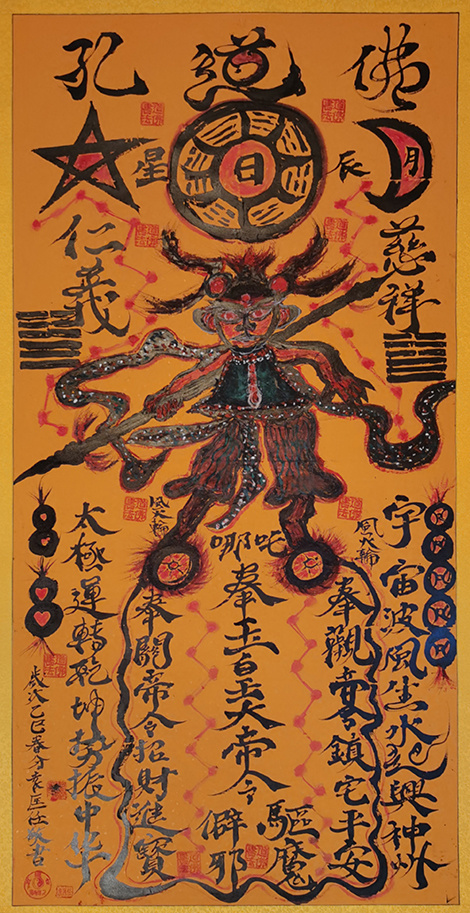 佛道孔
月
辰
日
星
慈祥
仁義
風火輪
風火輪
哪吒
宇宙波風生水起興神州
奉觀音令鎮宅平安
奉玉皇大帝令
驅魔
僻邪
奉關帝令招財進寶
太極運轉乾坤勢振中华
歲次乙巳春分袁匡任書